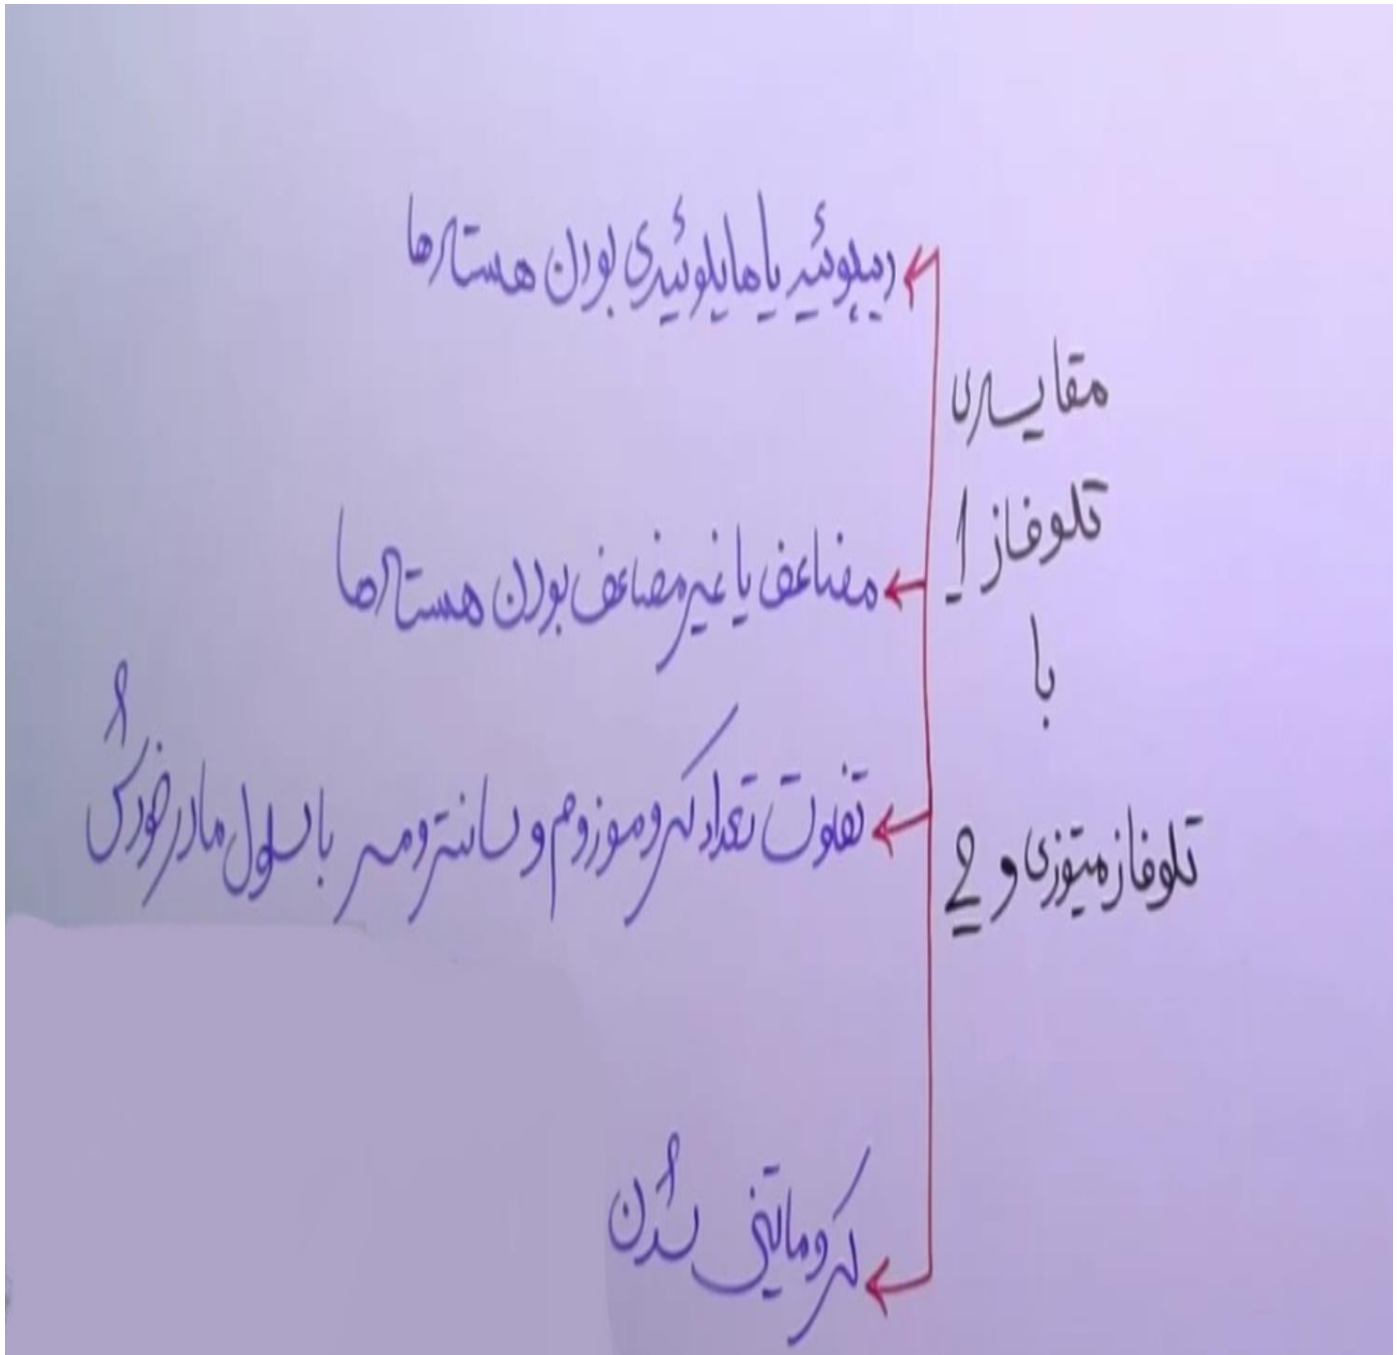 مقایسه‌ی
تلوفاز 1
با
تلوفاز میتوزی و 2
دیپلوئید یا هاپلوئیدی بودن هسته‌ها
مضاعف یا غیر مضاعف بودن هسته‌ها
تفاوت تعداد کروموزوم و سانترومر با سلول مادر خودش
کروماتینی شدن